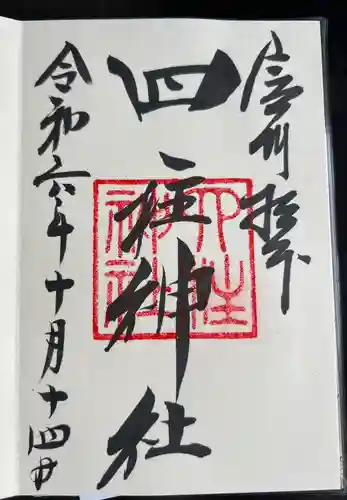 信州松本
四柱神社
令和六年十月十四日
四柱
神社